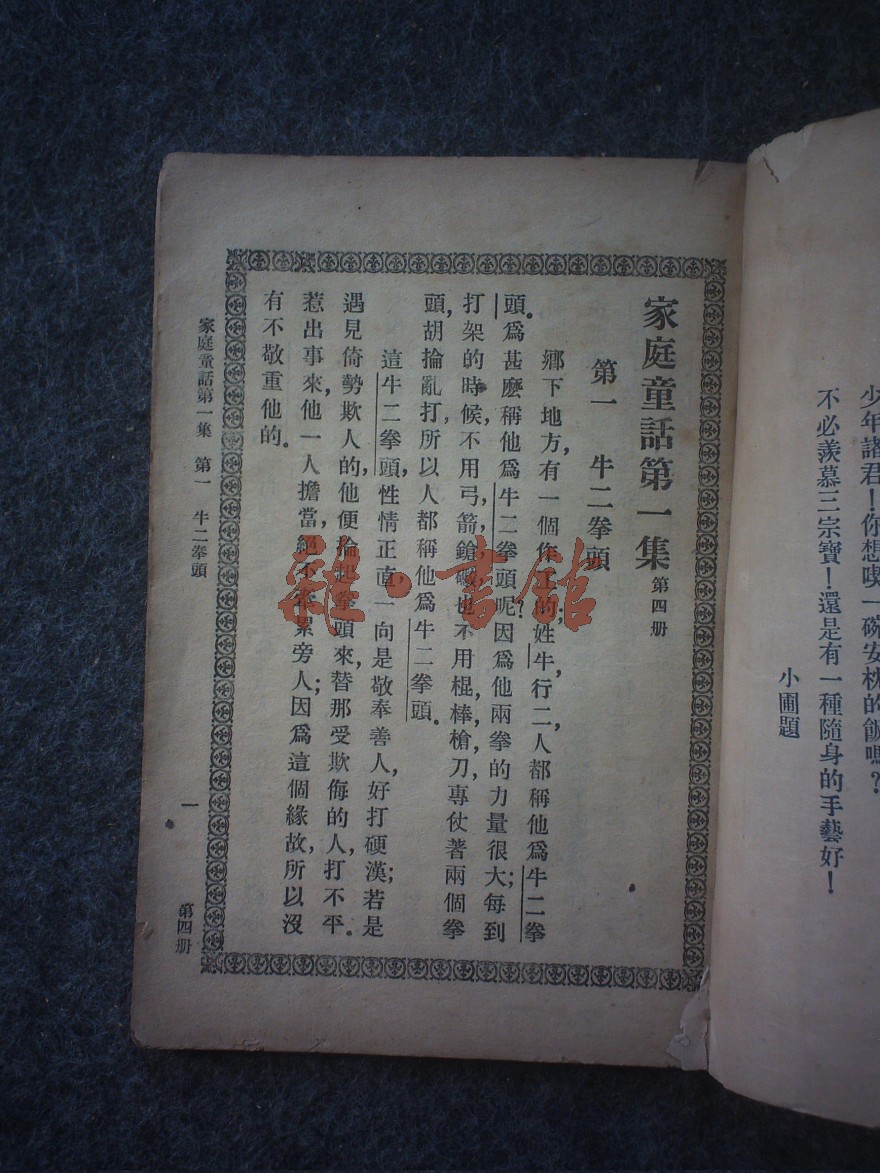 少年諸君！你想喫一碗安枕的飯嗎？
不必羨慕三宗寶！還是有一種隨身的手藝好！
小圃題
家庭童話第一集 第四册
第一 牛二拳頭
鄉下地方，有一個作工的；姓牛，行二，人都稱他爲牛二拳
頭。爲甚麽稱他爲牛二拳頭呢？因爲他兩拳的力量很大；每到
打架的時候，不用弓，箭，鎗，礮，也不用棍，棒，槍，刀，專仗著兩個拳
頭，胡掄亂打，所以人都稱他爲牛二拳頭。
這牛二拳頭，性情正直，一向是敬奉善人，好打硬漢；若是
遇見倚勢欺人的，他便掄起拳頭來，替那受欺侮的人，打不平。
惹出事來，他一人擔當，絕不累旁人；因爲這個緣故，所以沒
有不敬重他的。
家庭童話第一集 第一 牛二拳頭
一
第四册
雜·書館